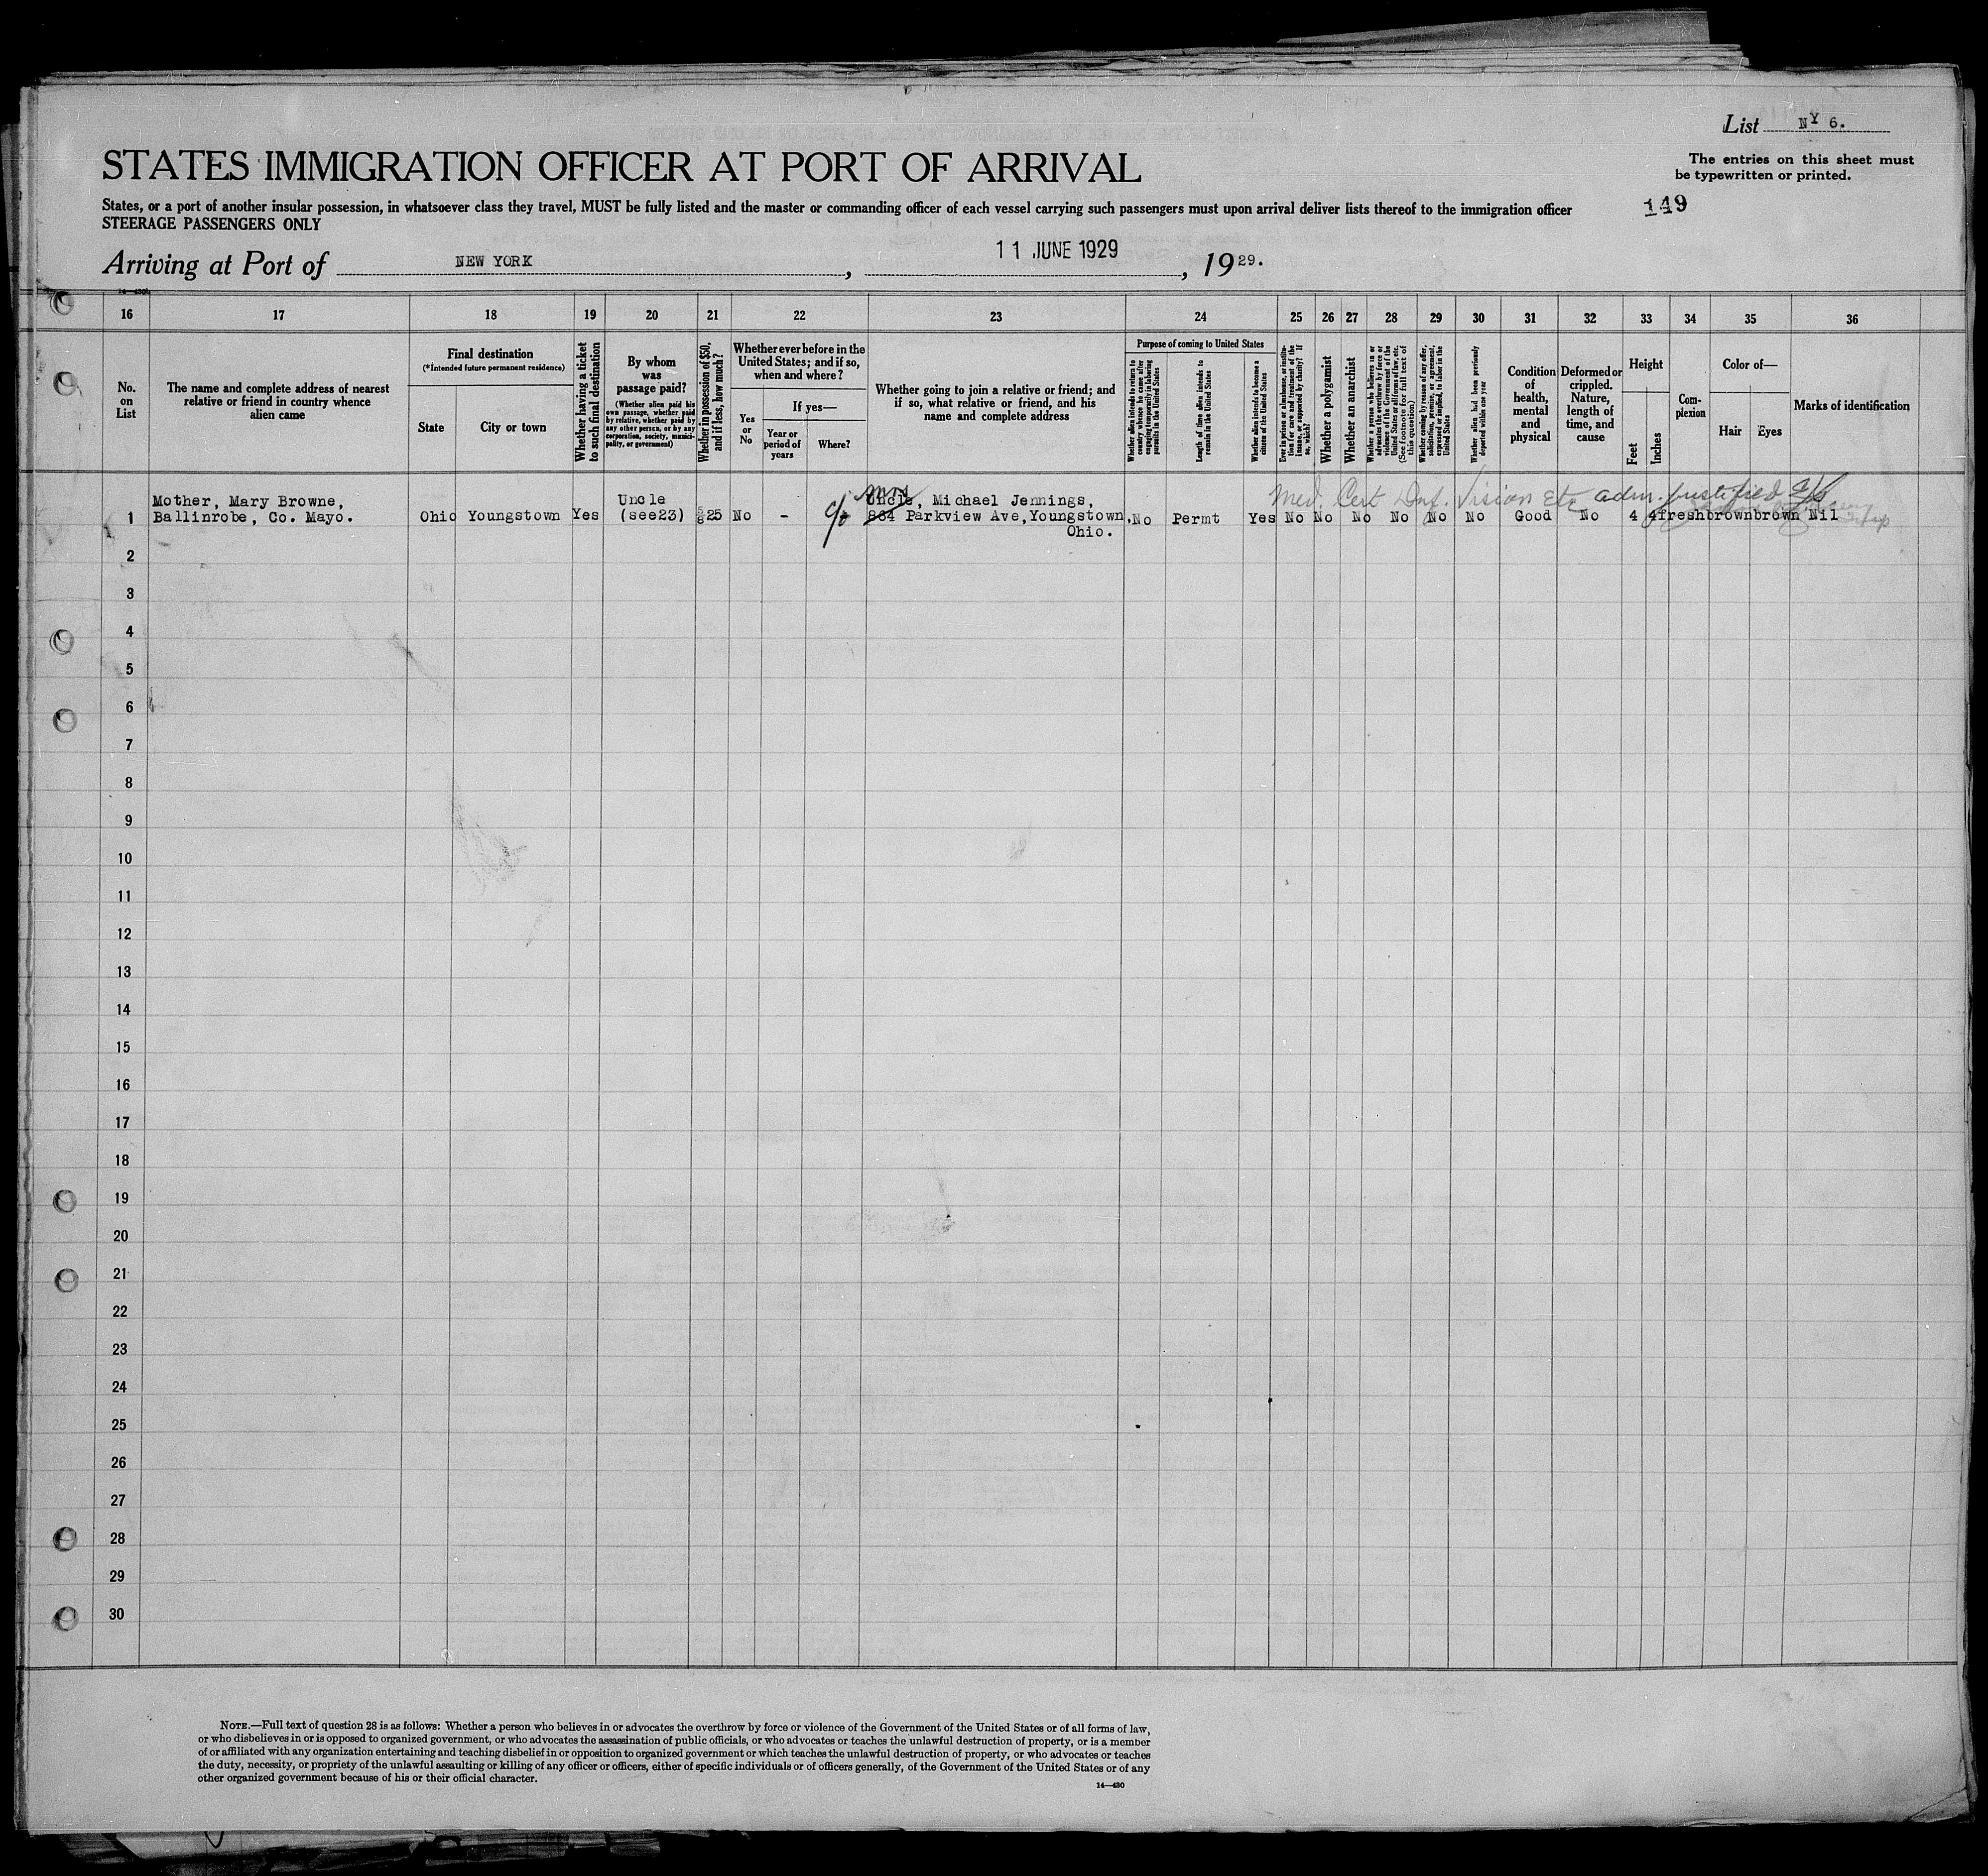 List NY 6.
STATES IMMIGRATION OFFICER AT PORT OF ARRIVAL
The entries on this sheet must
be typewritten or printed.
States, or a port of another insular possession, in whatsoever class they travel, MUST be fully listed and the master or commanding officer of each vessel carrying such passengers must upon arrival deliver lists thereof to the immigration officer
STEERAGE PASSENGERS ONLY
149
Arriving at Port of NEW YORK, 11 JUNE 1929, 1929.
16 17 18 19 20 21 22 23 24 25 26 27 28 29 30 31 32 33 34 35 36
No. on List
The name and complete address of nearest
relative or friend in country whence
alien came
Final destination
(*Intended future permanent residence)
State
City or town
Whether having a ticket
to such final destination
By whom
was
passage paid?
(Whether alien paid his
own passage, whether paid
by relative, whether paid by
any other person, or by any
corporation, society, munici-
pality, or government)
Whether in possession of $50,
and if less, how much?
Whether ever before in the
United States; and if so,
when and where?
Yes
or
No
If yes—
Year or
period of
years
Where?
Whether going to join a relative or friend; and
if so, what relative or friend, and his
name and complete address
Purpose of coming to United States
Whether alien intends to return to
country whence he came after
engaging temporarily in laboring
pursuits in the United States
Length of time alien intends to
remain in the United States
Whether alien intends to become a
citizen of the United States
Ever in prison or almshouse, or institu-
tion for care and treatment of the
insane, or supported by charity? If
so, which?
Whether a polygamist
Whether an anarchist
Whether a person who believes in or
advocates the overthrow by force or
violence of the Government of the
United States or all forms of law, etc.
(See footnote for full text of
this question)
Whether coming by reason of any offer,
solicitation, promise, or agreement,
expressed or implied, to labor in the
United States
Whether alien had been previously
deported within one year
Condition
of
health,
mental
and
physical
Deformed or
crippled.
Nature,
length of
time, and
cause
Height
Feet
Inches
Com-
plexion
Color of—
Hair
Eyes
Marks of identification
Mother, Mary Browne, Uncle Mrs Uncle, Michael Jennings, Med. Cert Def. Vision etc adm.
1 Ballinrobe, Co. Mayo. Ohio Youngstown Yes (see23) 25 No - c/o 864 Parkview Ave, Youngstown, No Permt Yes No No No No No No Good No 4 4 fresh brown brown Nil
Ohio.
2
3
4
5
6
7
8
9
10
11
12
13
14
15
16
17
18
19
20
21
22
23
24
25
26
27
28
29
30
NOTE.—Full text of question 28 is as follows: Whether a person who believes in or advocates the overthrow by force or violence of the Government of the United States or of all forms of law,
or who disbelieves in or is opposed to organized government, or who advocates the assassination of public officials, or who advocates or teaches the unlawful destruction of property, or is a member
of or affiliated with any organization entertaining and teaching disbelief in or opposition to organized government or which teaches the unlawful destruction of property, or who advocates or teaches
the duty, necessity, or propriety of the unlawful assaulting or killing of any officer or officers, either of specific individuals or of officers generally, of the Government of the United States or of any
other organized government because of his or their official character.
14—430